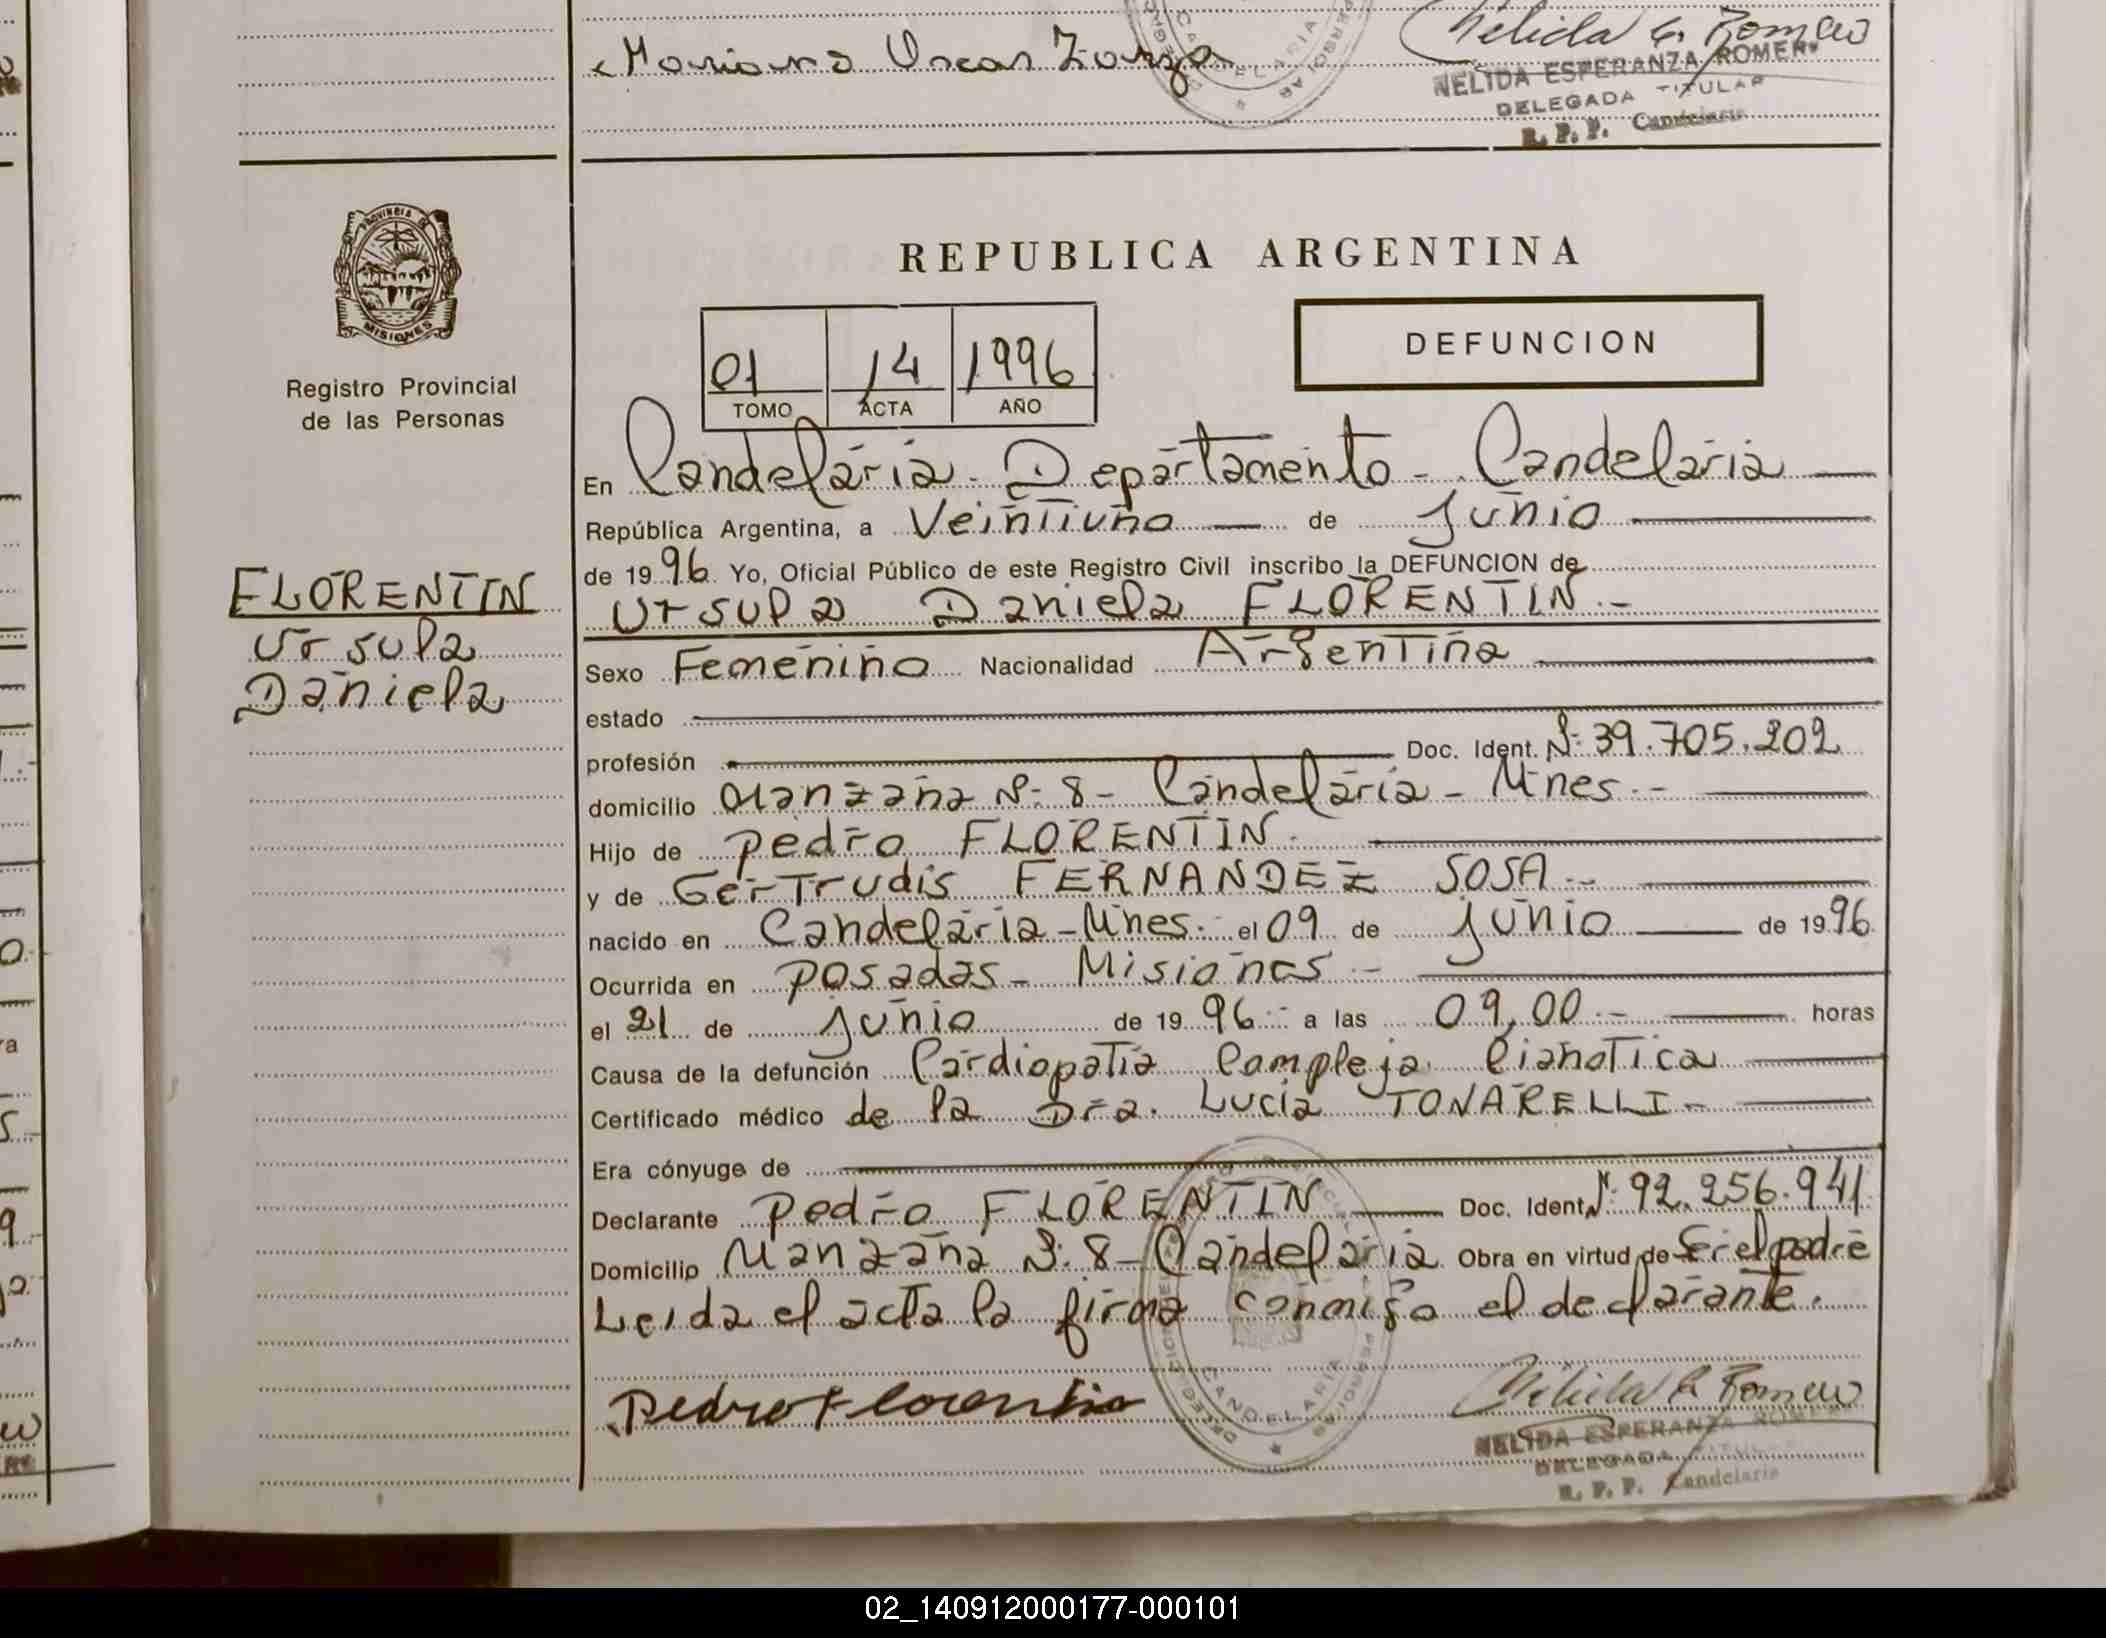 Mariano Oscar Zorzo
Nélida E. Romero
NELIDA ESPERANZA ROMERO
DELEGADA TITULAR
R. P. P. Candelaria
PROVINCIA DE
MISIONES
Registro Provincial
de las Personas
REPUBLICA ARGENTINA
01 14 1996
TOMO ACTA AÑO
DEFUNCION
En Candelaria - Departamento - Candelaria
República Argentina, a Veintiuno de Junio
de 1996. Yo, Oficial Público de este Registro Civil inscribo la DEFUNCION de
Ursula Daniela FLORENTIN.-
FLORENTIN
Ursula
Daniela
Sexo Femenino Nacionalidad Argentina
estado
profesión Doc. Ident. Nº 39.705.202
domicilio Manzana Nº 8 - Candelaria - Mnes.-
Hijo de Pedro FLORENTIN.
y de Gertrudis FERNANDEZ SOSA.-
nacido en Candelaria - Mnes. el 09 de Junio de 1996
Ocurrida en Posadas - Misiones.-
el 21 de Junio de 1996 a las 09,00.- horas
Causa de la defunción Cardiopatia Compleja Cianotica
Certificado médico de la Dra. Lucia TONARELLI.-
Era cónyuge de
Declarante Pedro FLORENTIN Doc. Ident. Nº 92.256.941
Domicilio Manzana Nº 8 - Candelaria Obra en virtud de Ser el padre
Leida el acta la firma conmigo el declarante.
Pedro Florentin
CANDELARIA
Nélida E. Romero
NELIDA ESPERANZA ROMERO
DELEGADA TITULAR
R. P. P. Candelaria
02_140912000177-000101